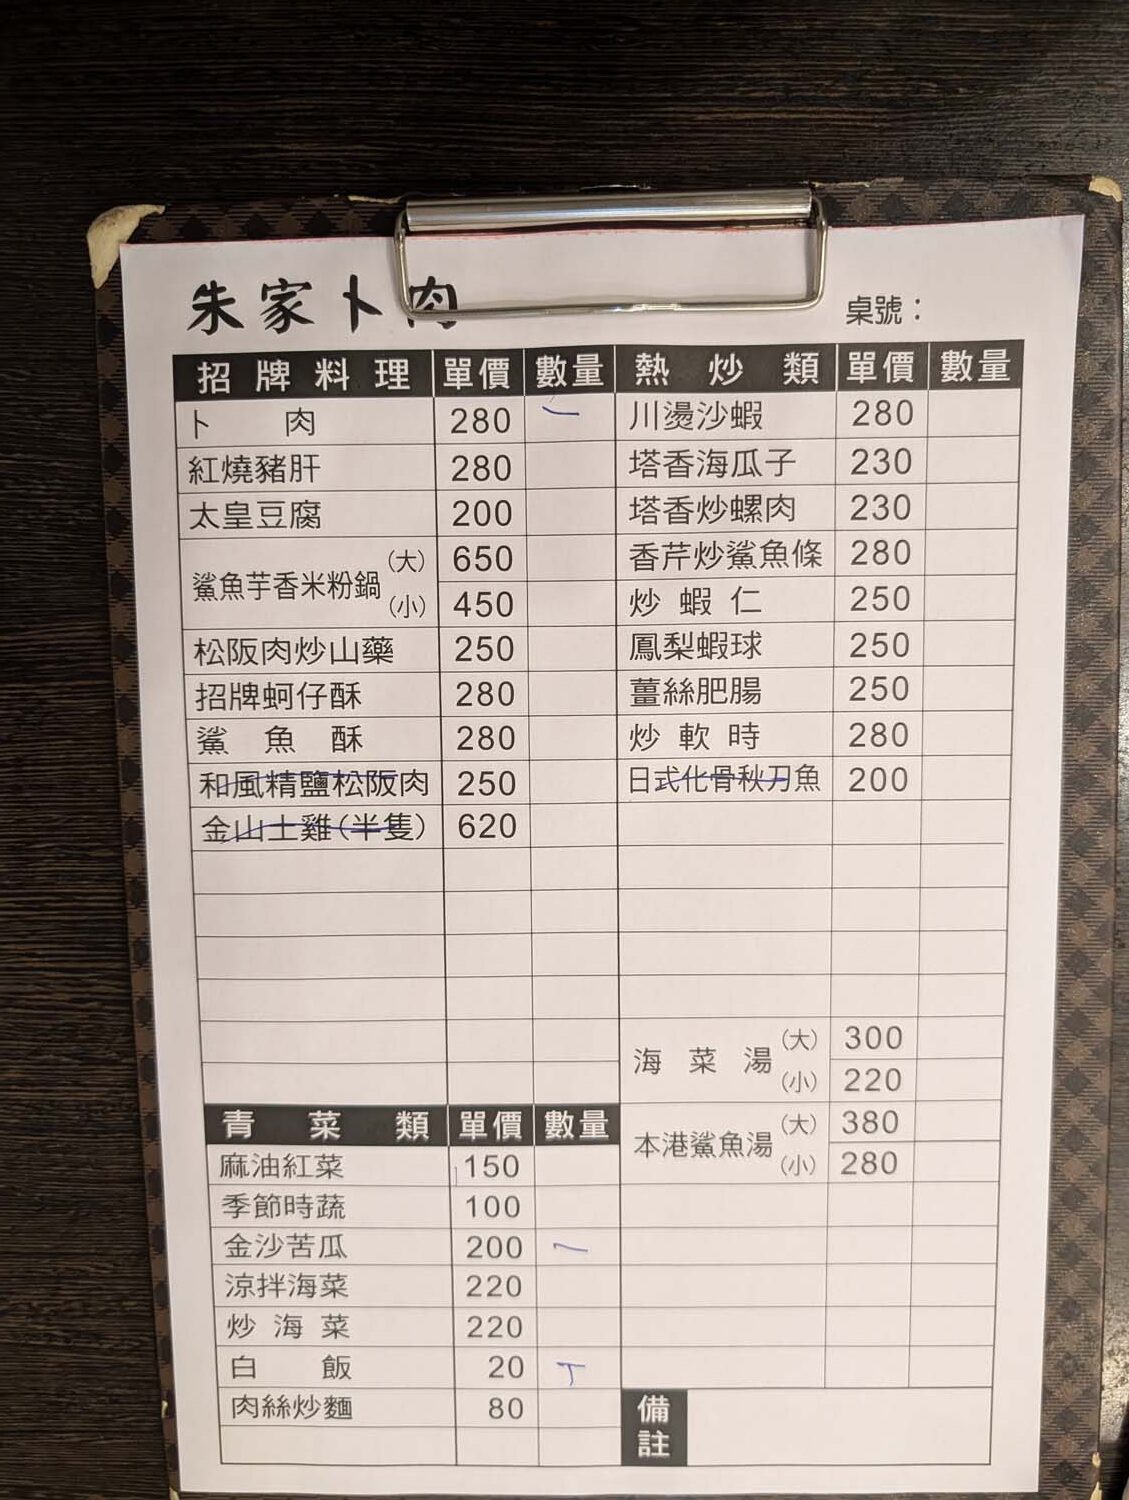 朱家卜肉
桌號：
招牌料理 單價 數量
卜肉 280 一
紅燒豬肝 280
太皇豆腐 200
鯊魚芋香米粉鍋 (大) 650
(小) 450
松阪肉炒山藥 250
招牌蚵仔酥 280
鯊魚酥 280
和風精鹽松阪肉 250
金山土雞(半隻) 620
青菜類 單價 數量
麻油紅菜 150
季節時蔬 100
金沙苦瓜 200 一
涼拌海菜 220
炒海菜 220
白飯 20 丅
肉絲炒麵 80
熱炒類 單價 數量
川燙沙蝦 280
塔香海瓜子 230
塔香炒螺肉 230
香芹炒鯊魚條 280
炒蝦仁 250
鳳梨蝦球 250
薑絲肥腸 250
炒軟時 280
日式化骨秋刀魚 200
海菜湯 (大) 300
(小) 220
本港鯊魚湯 (大) 380
(小) 280
備註